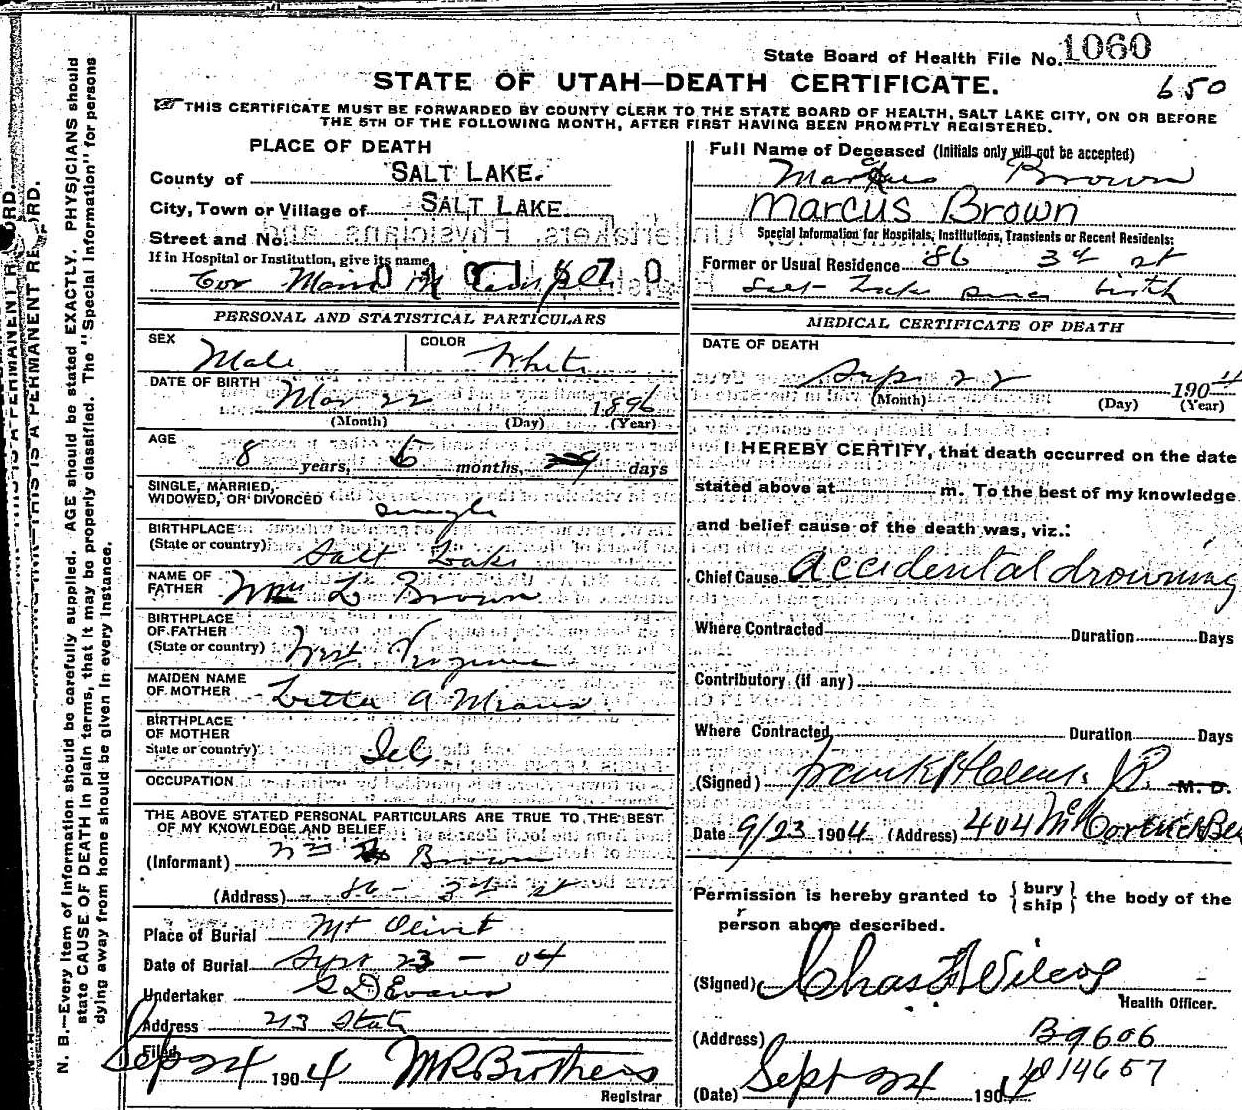 State Board of Health File No. 1060
650
STATE OF UTAH—DEATH CERTIFICATE.
THIS CERTIFICATE MUST BE FORWARDED BY COUNTY CLERK TO THE STATE BOARD OF HEALTH, SALT LAKE CITY, ON OR BEFORE
THE 5TH OF THE FOLLOWING MONTH, AFTER FIRST HAVING BEEN PROMPTLY REGISTERED.
PLACE OF DEATH
County of SALT LAKE.
City, Town or Village of SALT LAKE.
Street and No.
If in Hospital or Institution, give its name
Cor Main
PERSONAL AND STATISTICAL PARTICULARS
SEX Male
COLOR White
DATE OF BIRTH Mar 22 1896
(Month) (Day) (Year)
AGE
8 years, 6 months, days
SINGLE, MARRIED,
WIDOWED, OR DIVORCED single
BIRTHPLACE
(State or country) Salt Lake
NAME OF
FATHER Wm L Brown
BIRTHPLACE
OF FATHER
(State or country) West Virginia
MAIDEN NAME
OF MOTHER A Means
BIRTHPLACE
OF MOTHER
State or country)
OCCUPATION
THE ABOVE STATED PERSONAL PARTICULARS ARE TRUE TO THE BEST
OF MY KNOWLEDGE AND BELIEF
(Informant) Wm Brown
(Address) 86 - 3rd st
Place of Burial Mt Olivet
Date of Burial Sept 23 - 04
Undertaker S D Evans
Address 213 State
Filed Sep 24 1904 M R Brothers
Registrar
Full Name of Deceased (Initials only will not be accepted)
Marcus Brown
Marcus Brown
Special Information for Hospitals, Institutions, Transients or Recent Residents:
Former or Usual Residence 86 3rd st
Salt Lake since birth
MEDICAL CERTIFICATE OF DEATH
DATE OF DEATH
Sep 22 1904
(Month) (Day) (Year)
I HEREBY CERTIFY, that death occurred on the date
stated above at m. To the best of my knowledge
and belief cause of the death was, viz.:
Chief Cause Accidental drowning
Where Contracted Duration Days
Contributory (if any)
Where Contracted Duration Days
(Signed) M. D.
Date 9/23 1904 (Address) 404
Permission is hereby granted to { bury ship } the body of the
person above described.
(Signed) Chas Wilcox
Health Officer.
(Address) B9606
14657
(Date) Sept 24 1904
N. B.—Every item of information should be carefully supplied. AGE should be stated EXACTLY. PHYSICIANS should
state CAUSE OF DEATH in plain terms, that it may be properly classified. The "Special Information" for persons
dying away from home should be given in every instance.